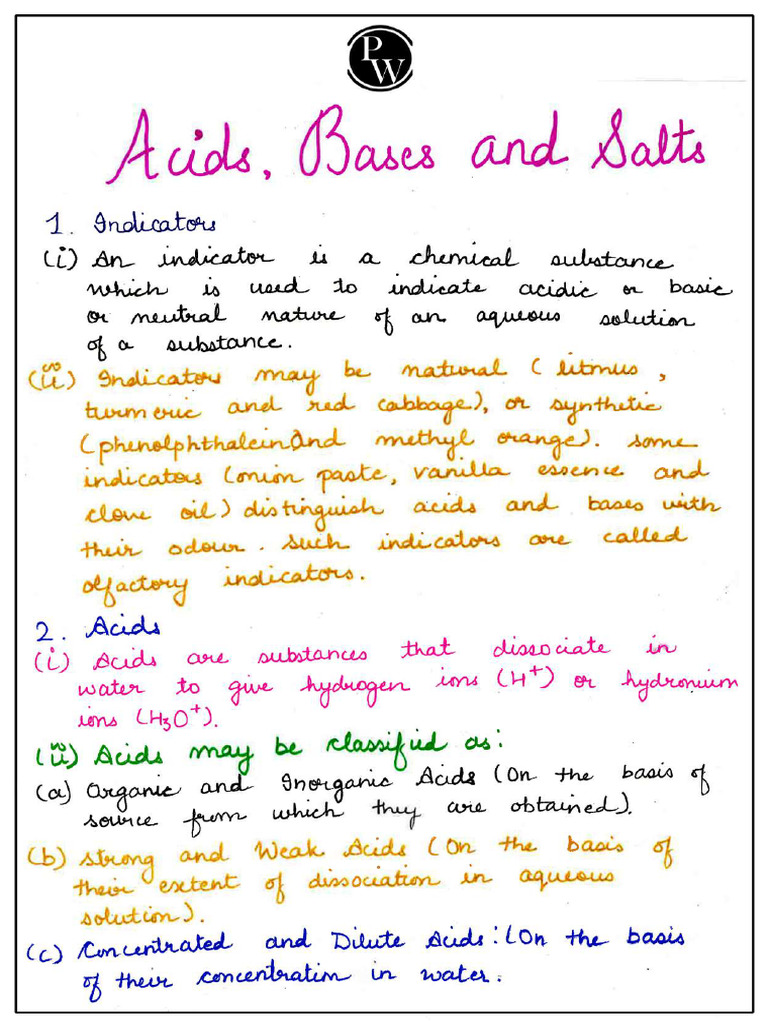 PW
Acids, Bases and Salts
1. Indicators
(i) An indicator is a chemical substance
which is used to indicate acidic or basic
or neutral nature of an aqueous solution
of a substance.
(ii) Indicators may be natural (litmus,
turmeric and red cabbage), or synthetic
(phenolphthalein and methyl orange). Some
indicators (onion paste, vanilla essence and
clove oil) distinguish acids and bases with
their odour. Such indicators are called
olfactory indicators.
2. Acids
(i) Acids are substances that dissociate in
water to give hydrogen ions (H⁺) or hydronium
ions (H₃O⁺).
(ii) Acids may be classified as:
(a) Organic and Inorganic Acids (On the basis of
source from which they are obtained).
(b) Strong and Weak Acids (On the basis of
their extent of dissociation in aqueous
solution).
(c) Concentrated and Dilute Acids: (On the basis
of their concentration in water.